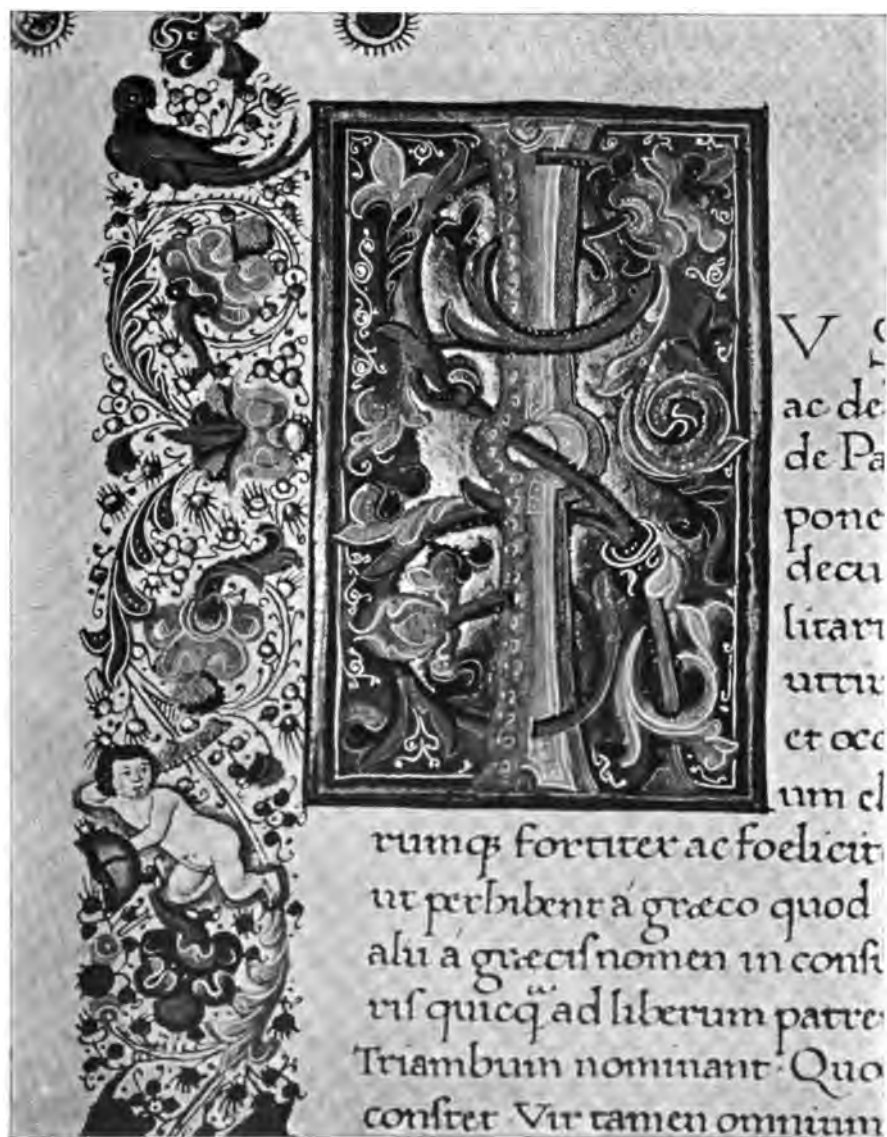 V
ac de
de Pa
pone
decu
litari
utriu
et occ
um el
rumq; fortiter ac foelicit
ut perhibent á græco quod
alii á græcis nomen in consu
ris quicq ad liberum patre
Triambum nominant · Quo
constet Vir tamen omnium